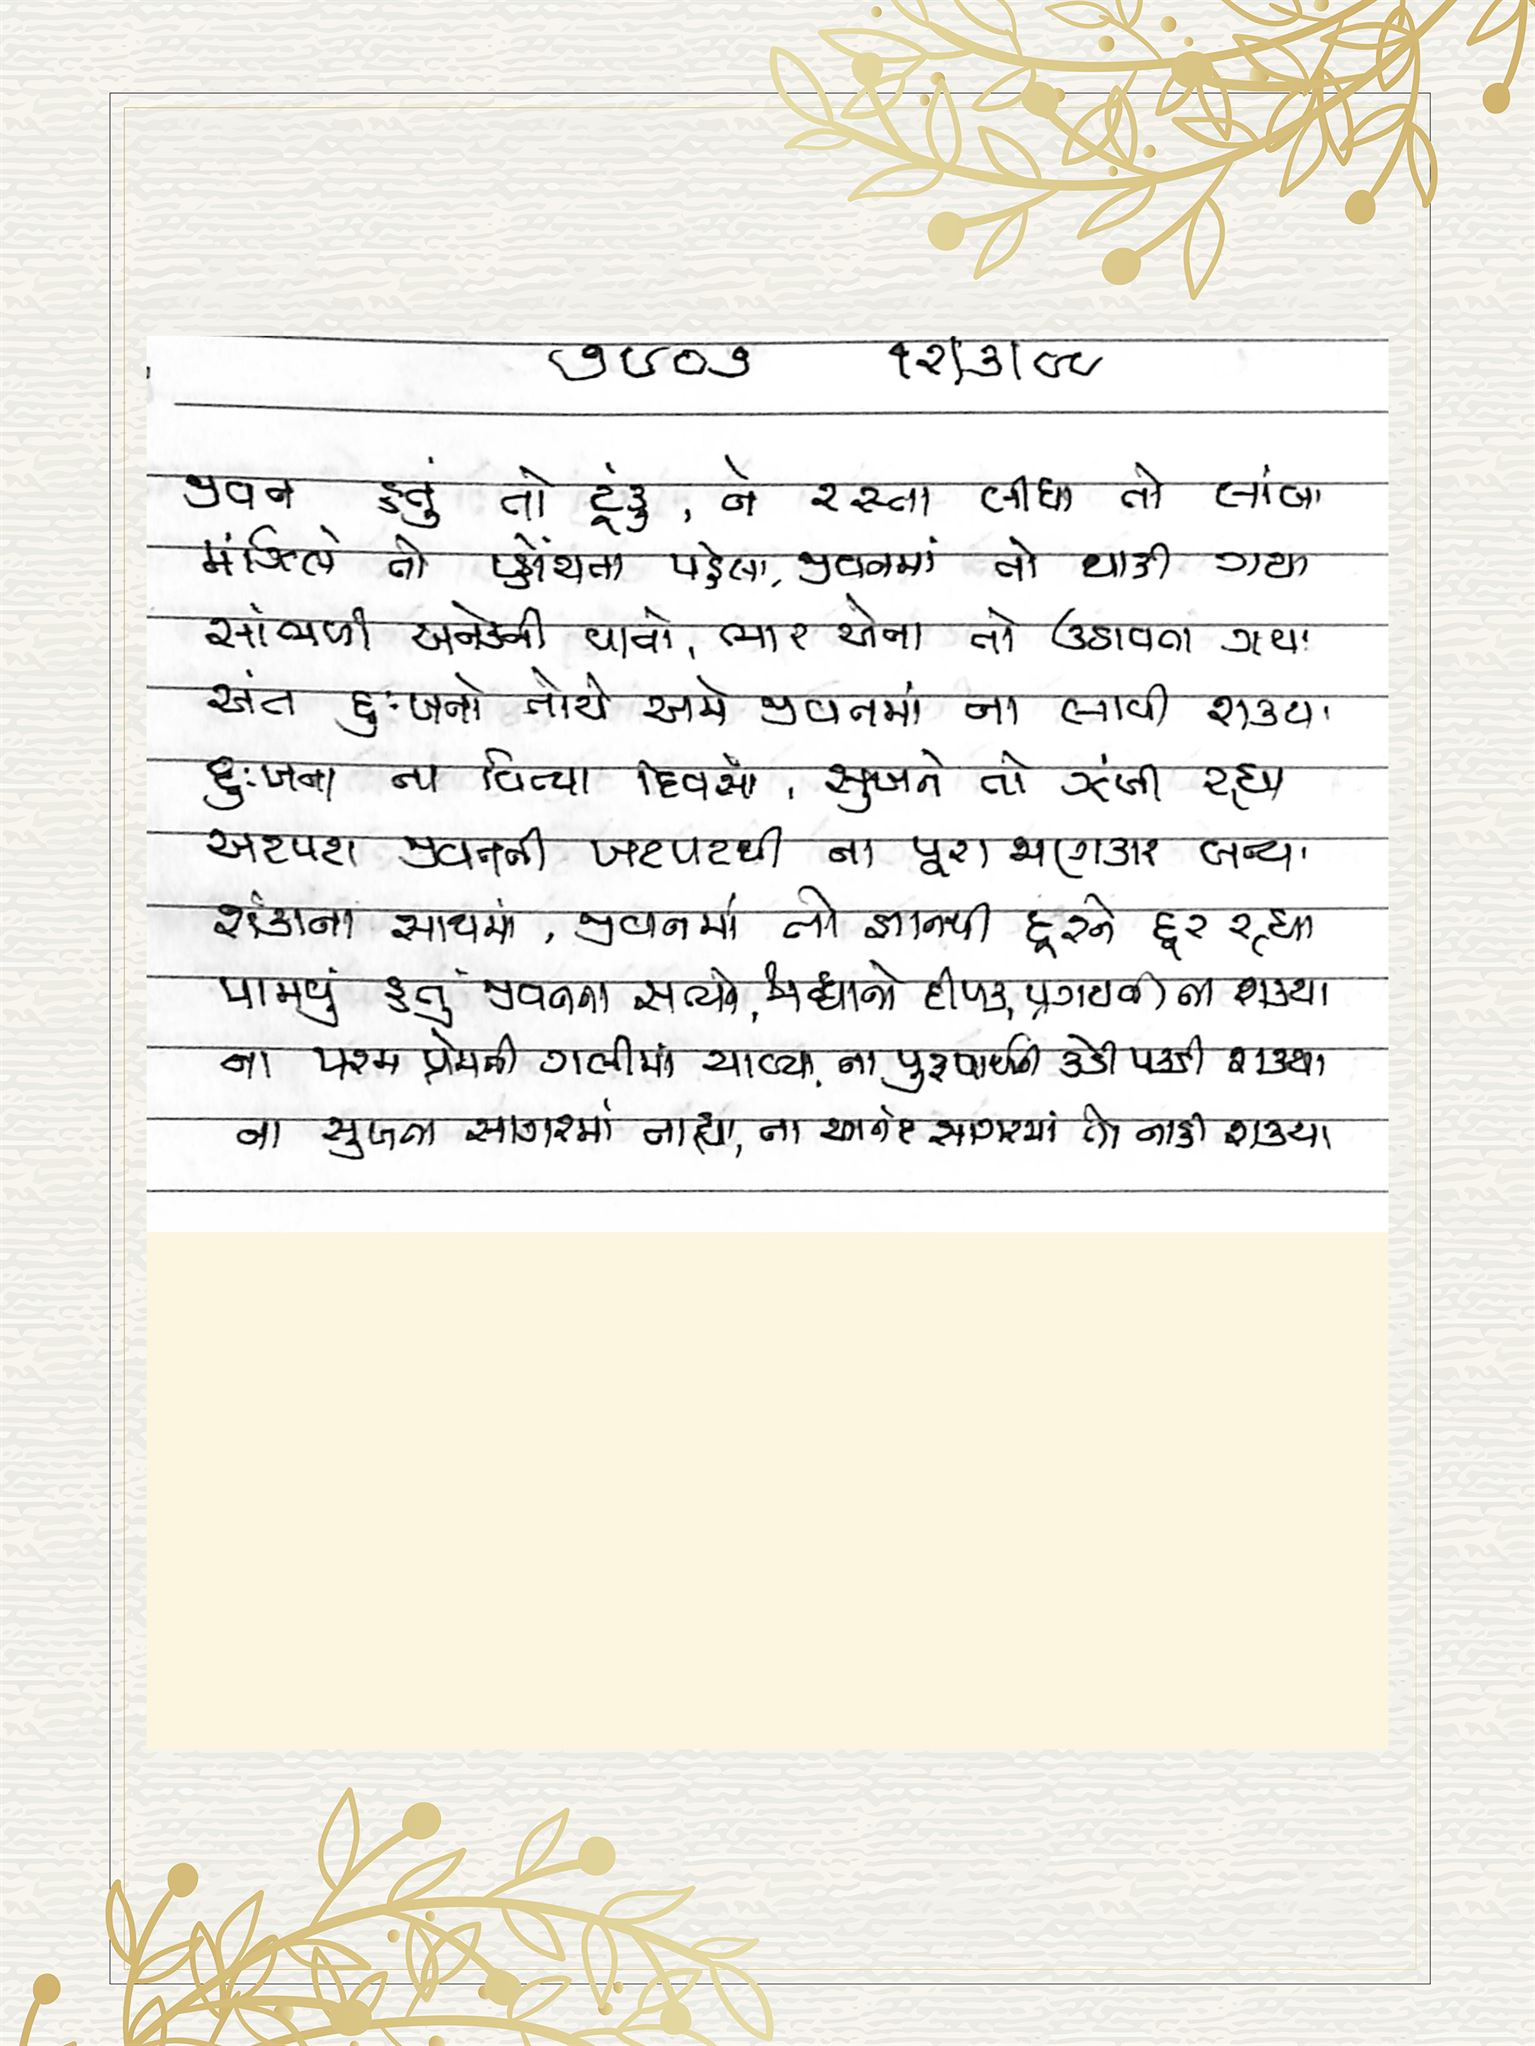 ૭૮૦૭ ૧૨/૩/૯૮
જીવન હતું તો ટૂંકું, ને રસ્તા લીધા તો લાંબા
મંઝિલે તો પહોંચતા પહેલા, જીવનમાં તો થાકી ગયા
સાંભળી અનેકની વાતો, ભાર એના તો ઉઠાવતા ગયા
અંત દુઃખનો તોયે અમે જીવનમાં ના લાવી શક્યા
દુઃખના ના વિત્યા દિવસો, સુખને તો ઝંખી રહ્યા
અટપટા જીવનની ખટપટથી ના પૂરા જાણકાર બન્યા
શંકાના સાથમાં, જીવનમાં તો જ્ઞાનથી દૂરને દૂર રહ્યા
પામવું હતું જીવનના સત્યને, શ્રદ્ધાનો દીપક પ્રગટાવી ના શક્યા
ના પરમ પ્રેમની ગલીમાં ચાલ્યા, ના પુરુષાર્થની કેડી પકડી શક્યા
ના સુખના સાગરમાં નાહ્યા, ના આનંદ સાગરમાં તો નાહી શક્યા